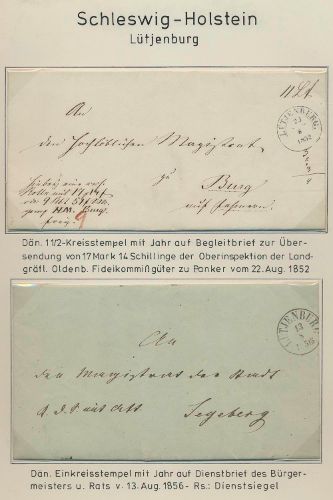 Schleswig-Holstein
Lütjenburg
11 Lt
An
den Hochlöblichen Magistrat
zu
Burg
auf Fehmarn.
LÜTJENBURG
1852
Dän. 11/2-Kreisstempel mit Jahr auf Begleitbrief zur Über-
sendung von 17 Mark 14 Schillinge der Oberinspektion der Land-
gräfl. Oldenb. Fideikommißgüter zu Panker vom 22. Aug. 1852
LÜTJENBURG
13
8
1856
An
den Magistrat der Stadt
Segeberg
Dän. Einkreisstempel mit Jahr auf Dienstbrief des Bürger-
meisters u. Rats v. 13. Aug. 1856- Rs.: Dienstsiegel